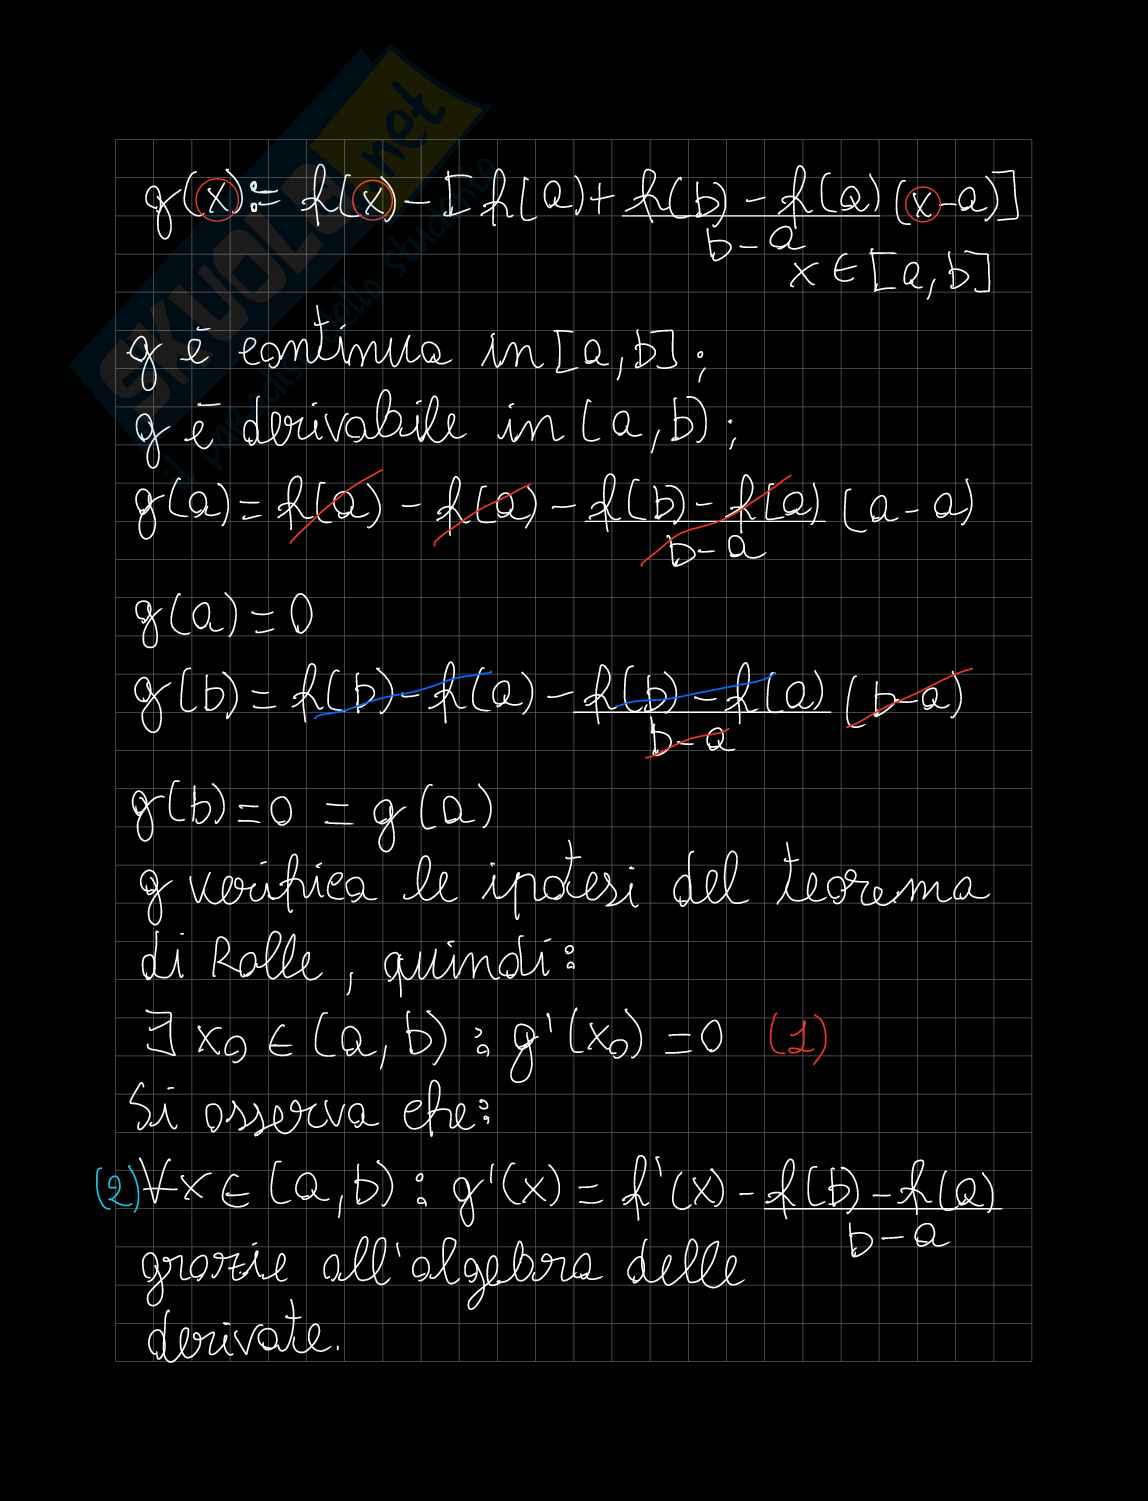 g(x) := f(x) - [f(a) + \frac{f(b) - f(a)}{b - a} (x - a)]
x ∈ [a, b]
g è continua in [a, b];
g è derivabile in (a, b);
g(a) = f(a) - f(a) - \frac{f(b) - f(a)}{b - a} (a - a)
g(a) = 0
g(b) = f(b) - f(a) - \frac{f(b) - f(a)}{b - a} (b - a)
g(b) = 0 = g(a)
g verifica le ipotesi del teorema
di Rolle, quindi:
∃ x₀ ∈ (a, b) : g'(x₀) = 0 (1)
Si osserva che:
(2) ∀x ∈ (a, b) : g'(x) = f'(x) - \frac{f(b) - f(a)}{b - a}
grazie all'algebra delle
derivate.
SKUOLA.net